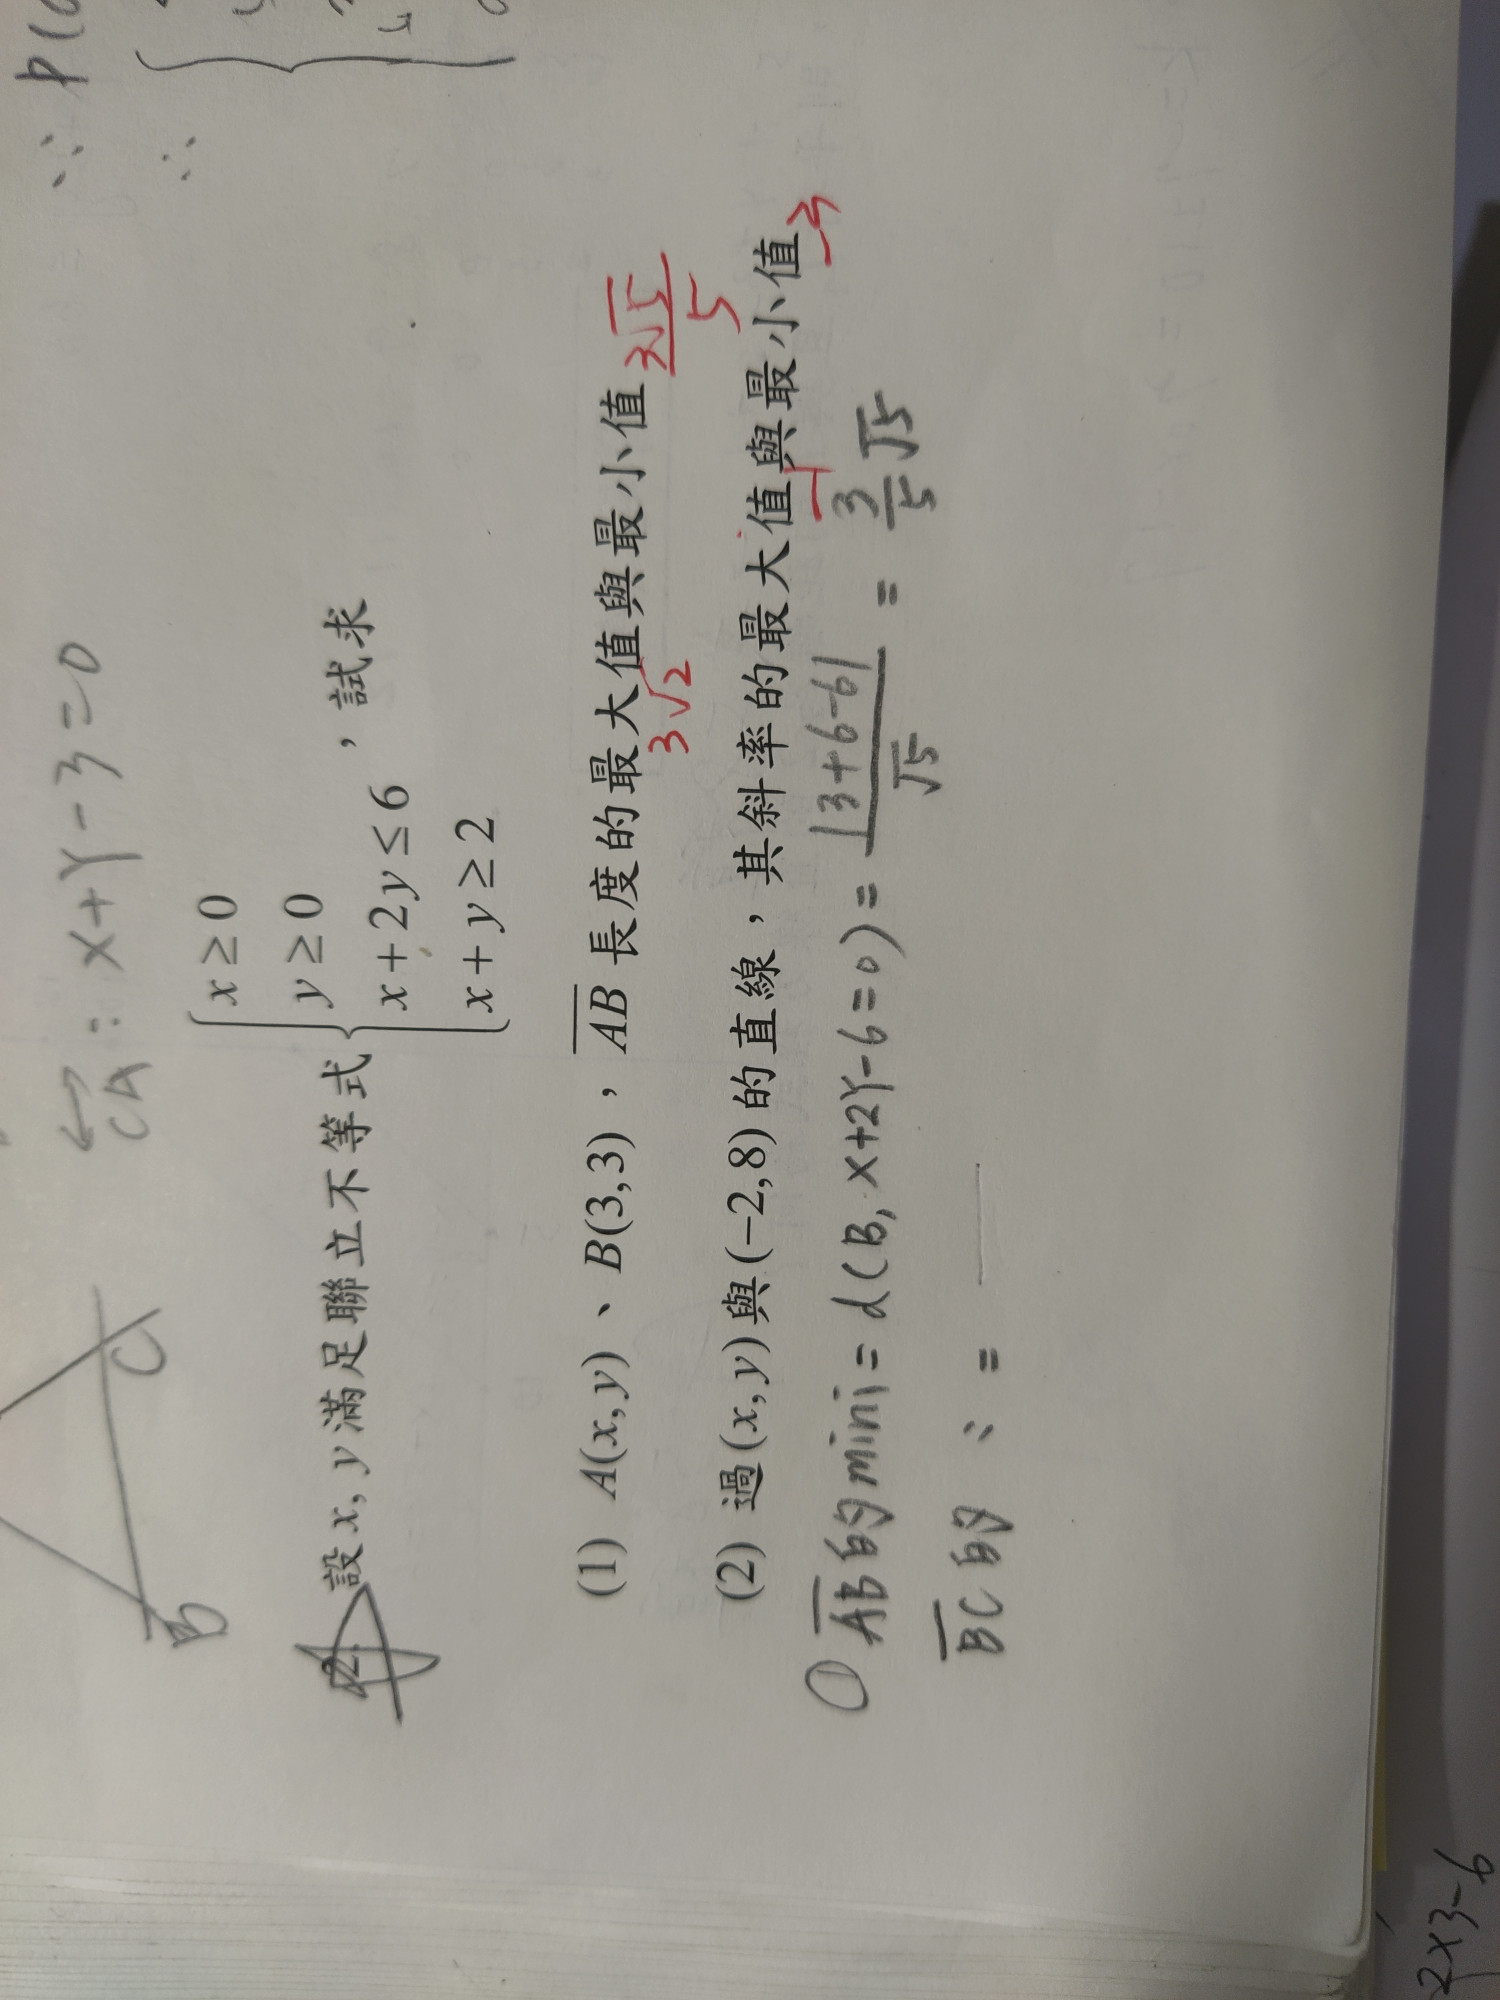 ∵ P(
∴
CA : x+y-3=0
B
C
2. 設 x, y 滿足聯立不等式 { x ≥ 0
y ≥ 0
x + 2y ≤ 6
x + y ≥ 2 ，試求
(1) A(x, y)、B(3,3)，AB 長度的最大值與最小值
3√2 3√5/5
(2) 過(x, y)與(−2,8)的直線，其斜率的最大值與最小值
-1 -3
① AB的mini = d(B, x+2y-6=0) = |3+6-6|/√5 = 3/5 √5
BC的 : =
2x3-6